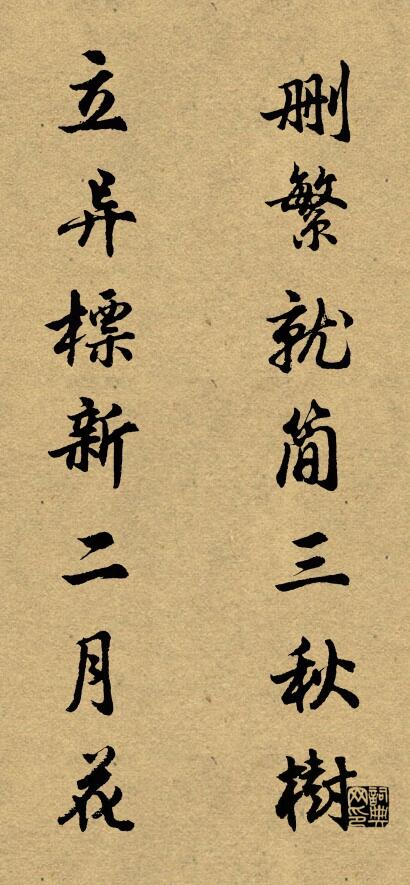 删繁就简三秋樹
立异標新二月花
詞典網印